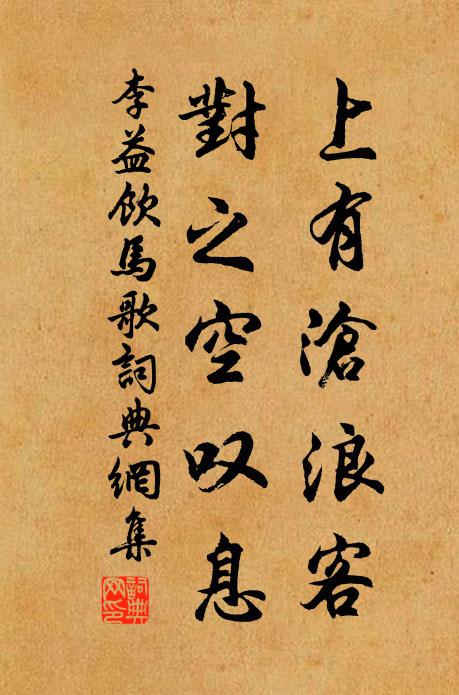 上有滄浪客
對之空叹息
李益飲馬歌詞典網集
詞典网印